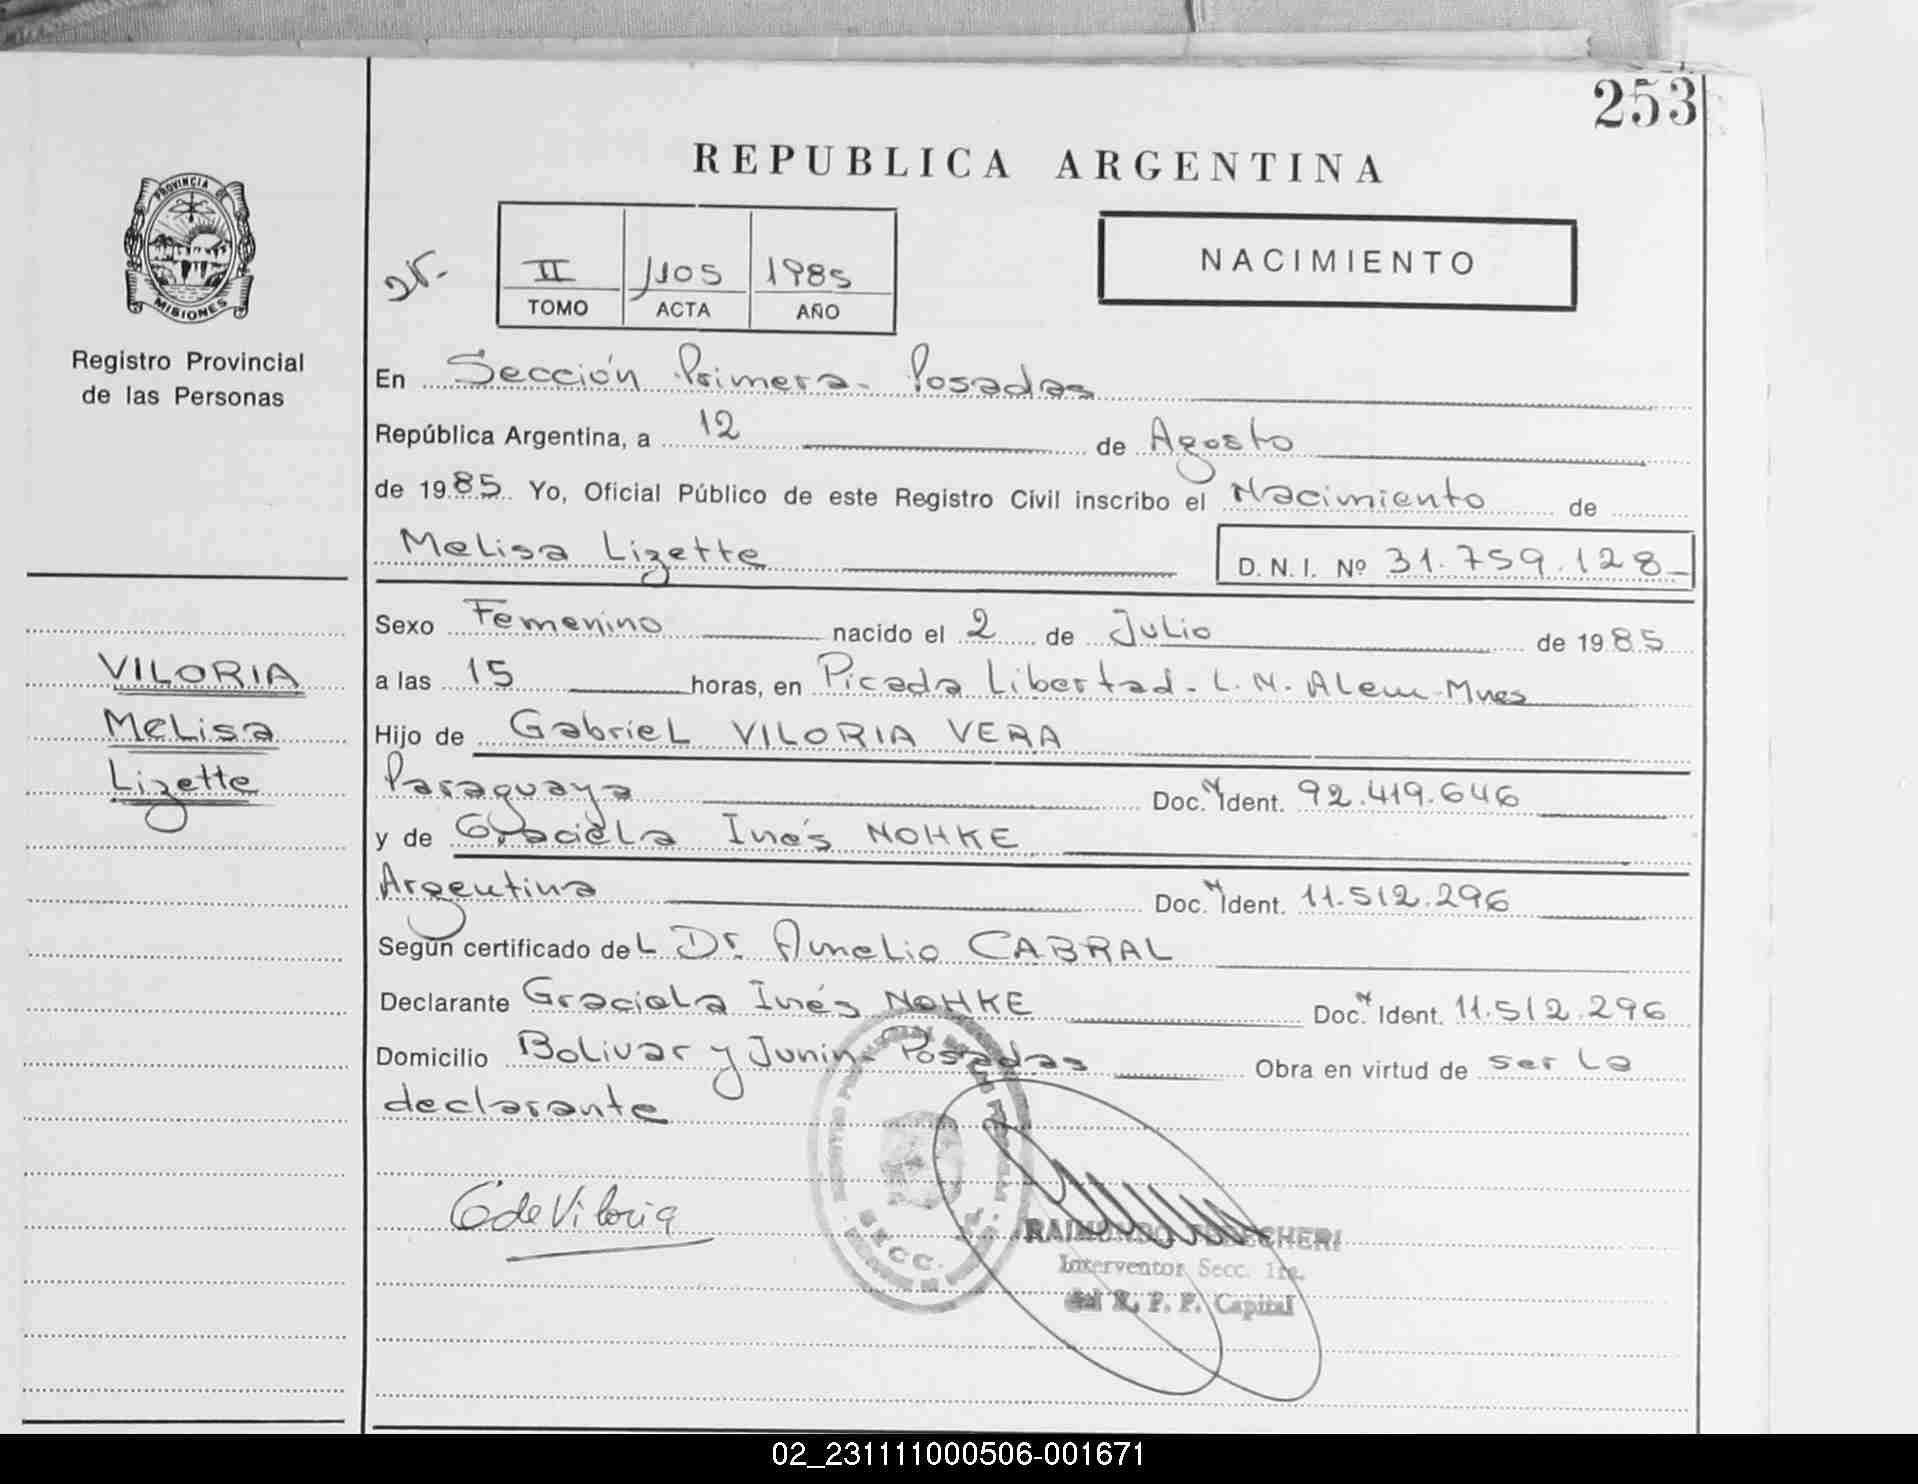 253
REPUBLICA ARGENTINA
PROVINCIA DE
MISIONES
Registro Provincial
de las Personas
II 1105 1985
TOMO ACTA AÑO
NACIMIENTO
En Sección Primera- Posadas
República Argentina, a 12 de Agosto
de 1985. Yo, Oficial Público de este Registro Civil inscribo el Nacimiento de
Melisa Lizette D.N.I. Nº 31.759.128-
Sexo Femenino nacido el 2 de Julio de 1985
a las 15 horas, en Picada Libertad- L.N. Alem-Mnes
Hijo de Gabriel VILORIA VERA
Paraguaya Doc. Ident. 92.419.646
y de Graciela Inés NOHKE
Argentina Doc. Ident. 11.512.296
Según certificado del Dr. Aurelio CABRAL
Declarante Graciela Inés NOHKE Doc. Ident. 11.512.296
Domicilio Bolivar y Junin- Posadas Obra en virtud de ser la
declarante
VILORIA
Melisa
Lizette
G de Viloria
SECC.
RAIMUNDO
Interventor Secc. 1ra.
del R. P. P. Capital
02_231111000506-001671